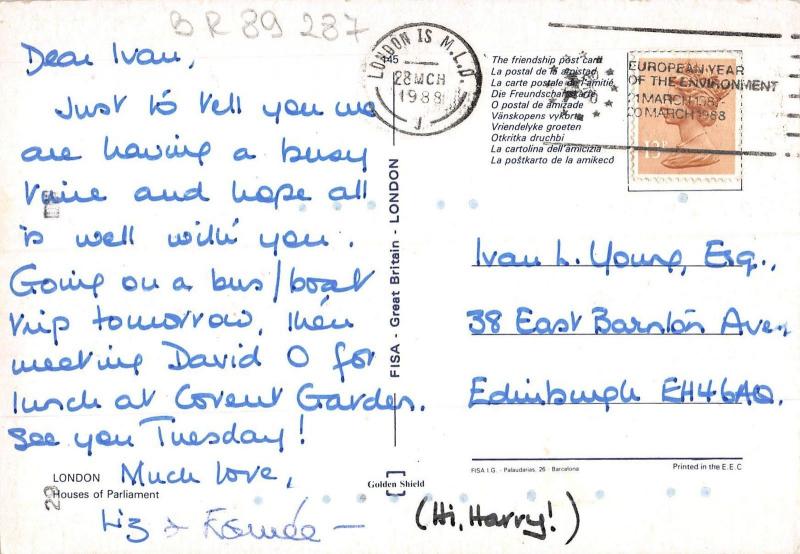 BR89 287
Dear Ivan,
Just to tell you we
are having a busy
time and hope all
is well with you.
Going on a bus/boat
trip tomorrow, then
meeting David O for
lunch at Covent Garden.
See you Tuesday!
Much love,
Liz &
(Hi, Harry!)
LONDON
Houses of Parliament
FISA - Great Britain - LONDON
Golden Shield
145
LONDON IS M.L.O.
28 MCH
1988
J
The friendship post card
La postal de la amistad
La carte postale de l'amitié
Die Freundschaftskarte
O postal de amizade
Vänskopens vykort
Vriendelyke groeten
Otkritka druchbi
La cartolina dell'amicizia
La poŝtkarto de la amikeco
EUROPEAN YEAR
OF THE ENVIRONMENT
21 MARCH 1987
20 MARCH 1988
13
Ivan L. Young, Esq.,
38 East Barnton Ave,
Edinburgh EH4 6AQ.
FISA I.G. - Palaudarias, 26 - Barcelona
Printed in the E.E.C